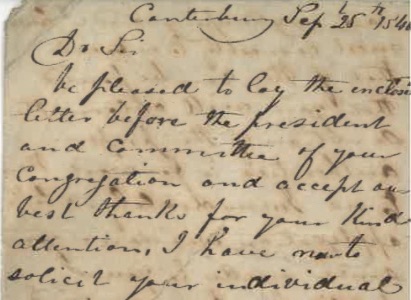 Canterbury Sep 25th 1840
Dr Sir
be pleased to lay the enclosed
letter before the president
and Committee of your
Congregation and accept our
best thanks for your kind
attention, I have now to
solicit your individual